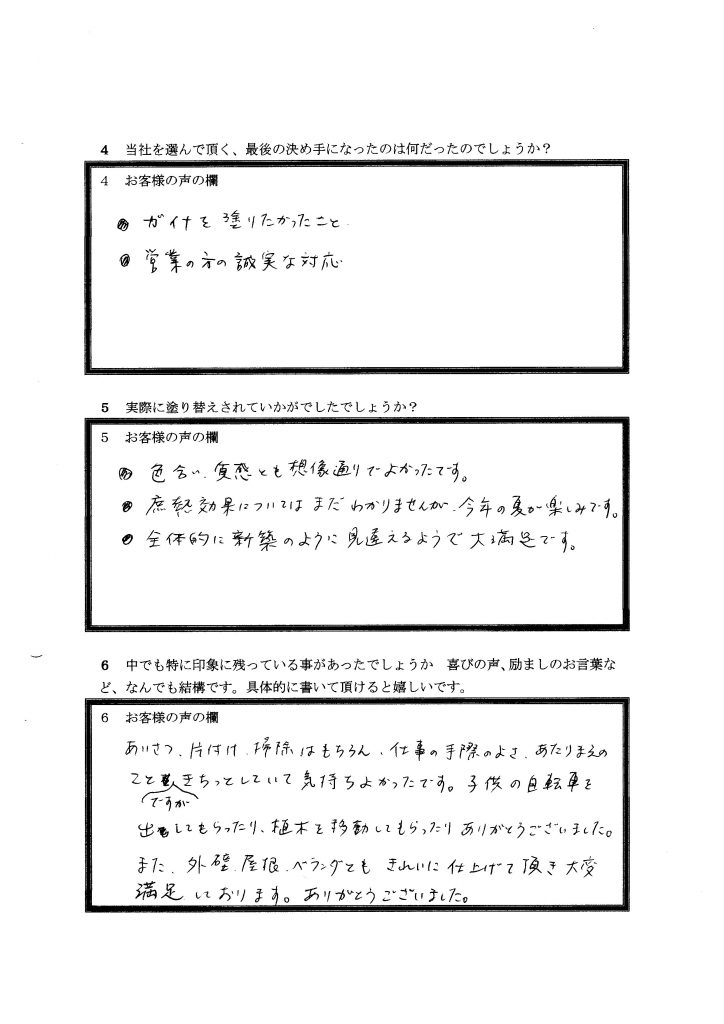 4 当社を選んで頂く、最後の決め手になったのは何だったのでしょうか？
4 お客様の声の欄
● ガイナを塗りたかったこと
● 営業の方の誠実な対応
5 実際に塗り替えされていかがでしたでしょうか？
5 お客様の声の欄
● 色合い、質感とも想像通りでよかったです。
● 庶熱効果についてはまだわかりませんが、今年の夏が楽しみです。
● 全体的に新築のように見違えるようで大満足です。
6 中でも特に印象に残っている事があったでしょうか 喜びの声、励ましのお言葉な
ど、なんでも結構です。具体的に書いて頂けると嬉しいです。
6 お客様の声の欄
あいさつ、片付け、掃除はもちろん、仕事の手際のよさ、あたりまえの
こときちっとしていて気持ちよかったです。子供の自転車を
ですが
出してもらったり、植木を移動してもらったりありがとうございました。
また、外壁、屋根、ベランダともきれいに仕上げて頂き大変
満足しております。ありがとうございました。